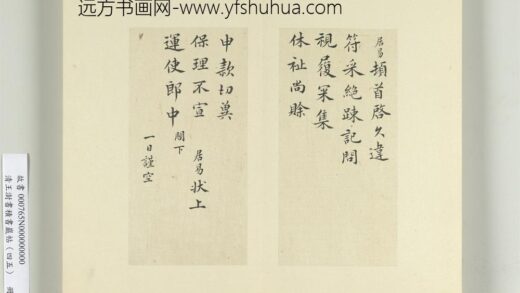 远方书画网-www.yfshuhua.com
居易 頓首啓久違
符采絶踈記問
視履冞集
休祉尚賒
申款切冀
保理不宣
居易 状上
運使郎中 閤下
一日謹空
故書 000765N000000000
清王澍書積書巖帖(四五)